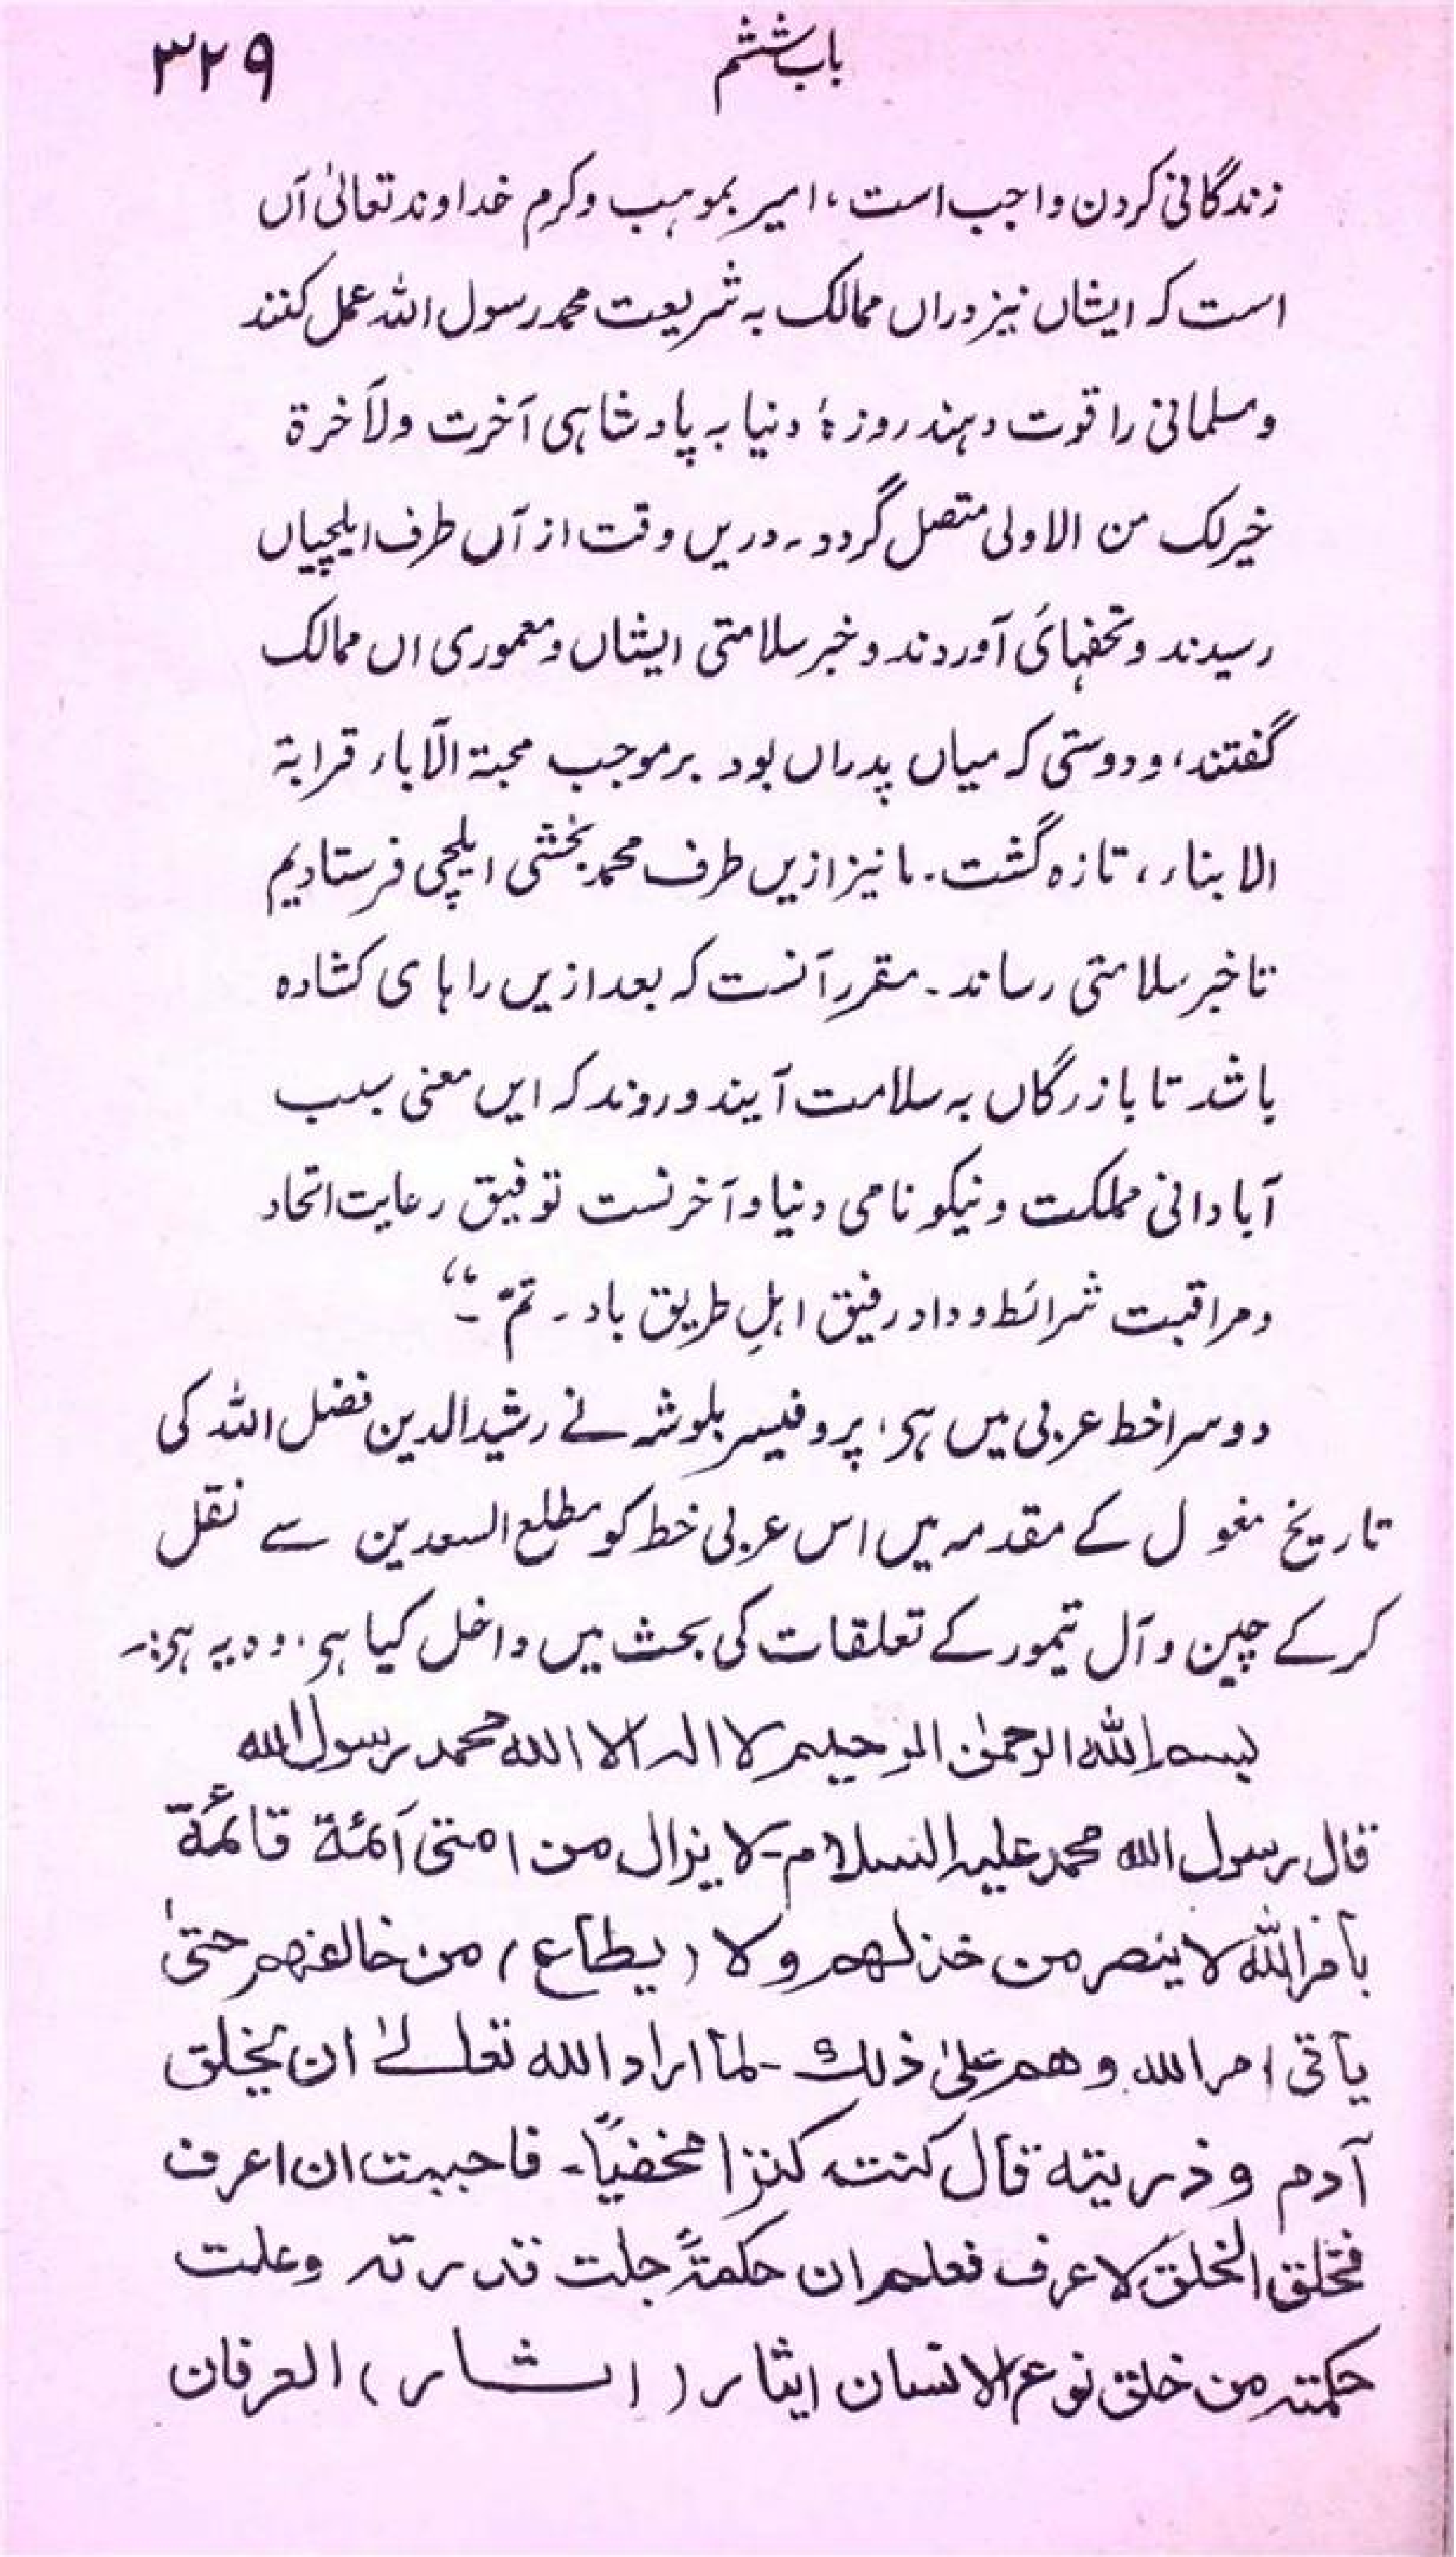 باب ششم
۳۲۹
زندگانی کردن واجب است، امیر بموہب وکرم خداوند تعالیٰ آں
است کہ ایشاں نیز دراں ممالک بہ شریعت محمد رسول اللہ عمل کنند
ومسلمانی را قوت دہند روزۂ دنیا بہ پادشاہی آخرت ولآخرۃ
خیرلک من الاولی متصل گردد۔ دریں وقت از آں طرف ایلچیاں
رسیدند وتحفہائ آوردند وخبر سلامتی ایشاں ومعموری اں ممالک
گفتند، ودوستی کہ میاں پدراں بود برموجب محبۃ الآباء قرابۃ
الابناء، تازہ گشت۔ ما نیز ازیں طرف محمد بخشی ایلچی فرستادیم
تا خبر سلامتی رساند۔ مقرر آنست کہ بعد ازیں راہا ی کشادہ
باشد تا بازرگاں بہ سلامت آیند وروند کہ ایں معنی سبب
آبادانی مملکت ونیکو نامی دنیا وآخرتست توفیق رعایت اتحاد
ومراقبت شرائط وداد رفیق اہلِ طریق باد۔ تمّ۔“
دوسرا خط عربی میں ہی، پروفیسر بلوشہ نے رشیدالدین فضل اللہ کی
تاریخ مغول کے مقدمہ میں اس عربی خط کو مطلع السعدین سے نقل
کرکے چین وآل تیمور کے تعلقات کی بحث میں داخل کیا ہی، وہ یہ ہی:۔
بسم اللہ الرحمٰن الرحیم لا الہ الا اللہ محمد رسول اللہ
قال رسول اللہ محمد علیہ السلام۔ لا یزال من امتی آئمۃ قائمۃ
بأمر اللہ لا ینصر من خذلهم ولا (یطاع) من خالفهم حتیٰ
یأتی امر اللہ وهم علیٰ ذلك۔ لما اراد اللہ تعالےٰ ان یخلق
آدم وذریته قال کنت کنزا مخفیاً۔ فاحببت ان اعرف
فخلق الخلق لاعرف فعلم ان حکمۃً جلت قدرتہ وعلت
حکمتہ من خلق نوع الانسان ایثار (اشار) العرفان